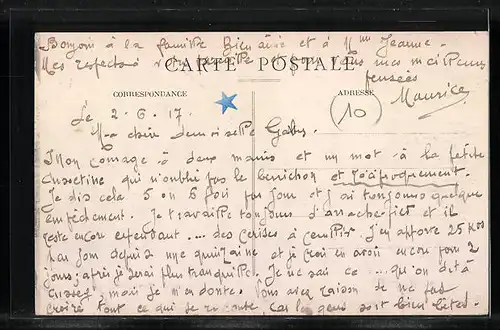 Bonjour à la famille Bienaimé et à Mme Jeanne.
Mes respects à votre famille et pour vous mes meilleures
pensées
CARTE POSTALE
CORRESPONDANCE
ADRESSE
Maurice
10
Le 2.6.17.
Ma chère demoiselle Gaby.
Mon à deux mains et un mot à la petite
qui n'oublie pas le berrichon et réciproquement.
Je dis cela 5 ou 6 fois par jour et j'ai toujours quelque
empêchement. Je travaille toujours d'arrache et il
reste encore cependant .... des cerises à cueillir. J'en apporte 25 Kos
par jour depuis une quinzaine et je crois en avoir encore pour 2
jours; après je serai plus tranquille. Je ne sais ce .... qu'on dit à
mais je m'en doute. Vous avez raison de ne pas
croire tout ce qui se raconte, car les gens sont bien bêtes.